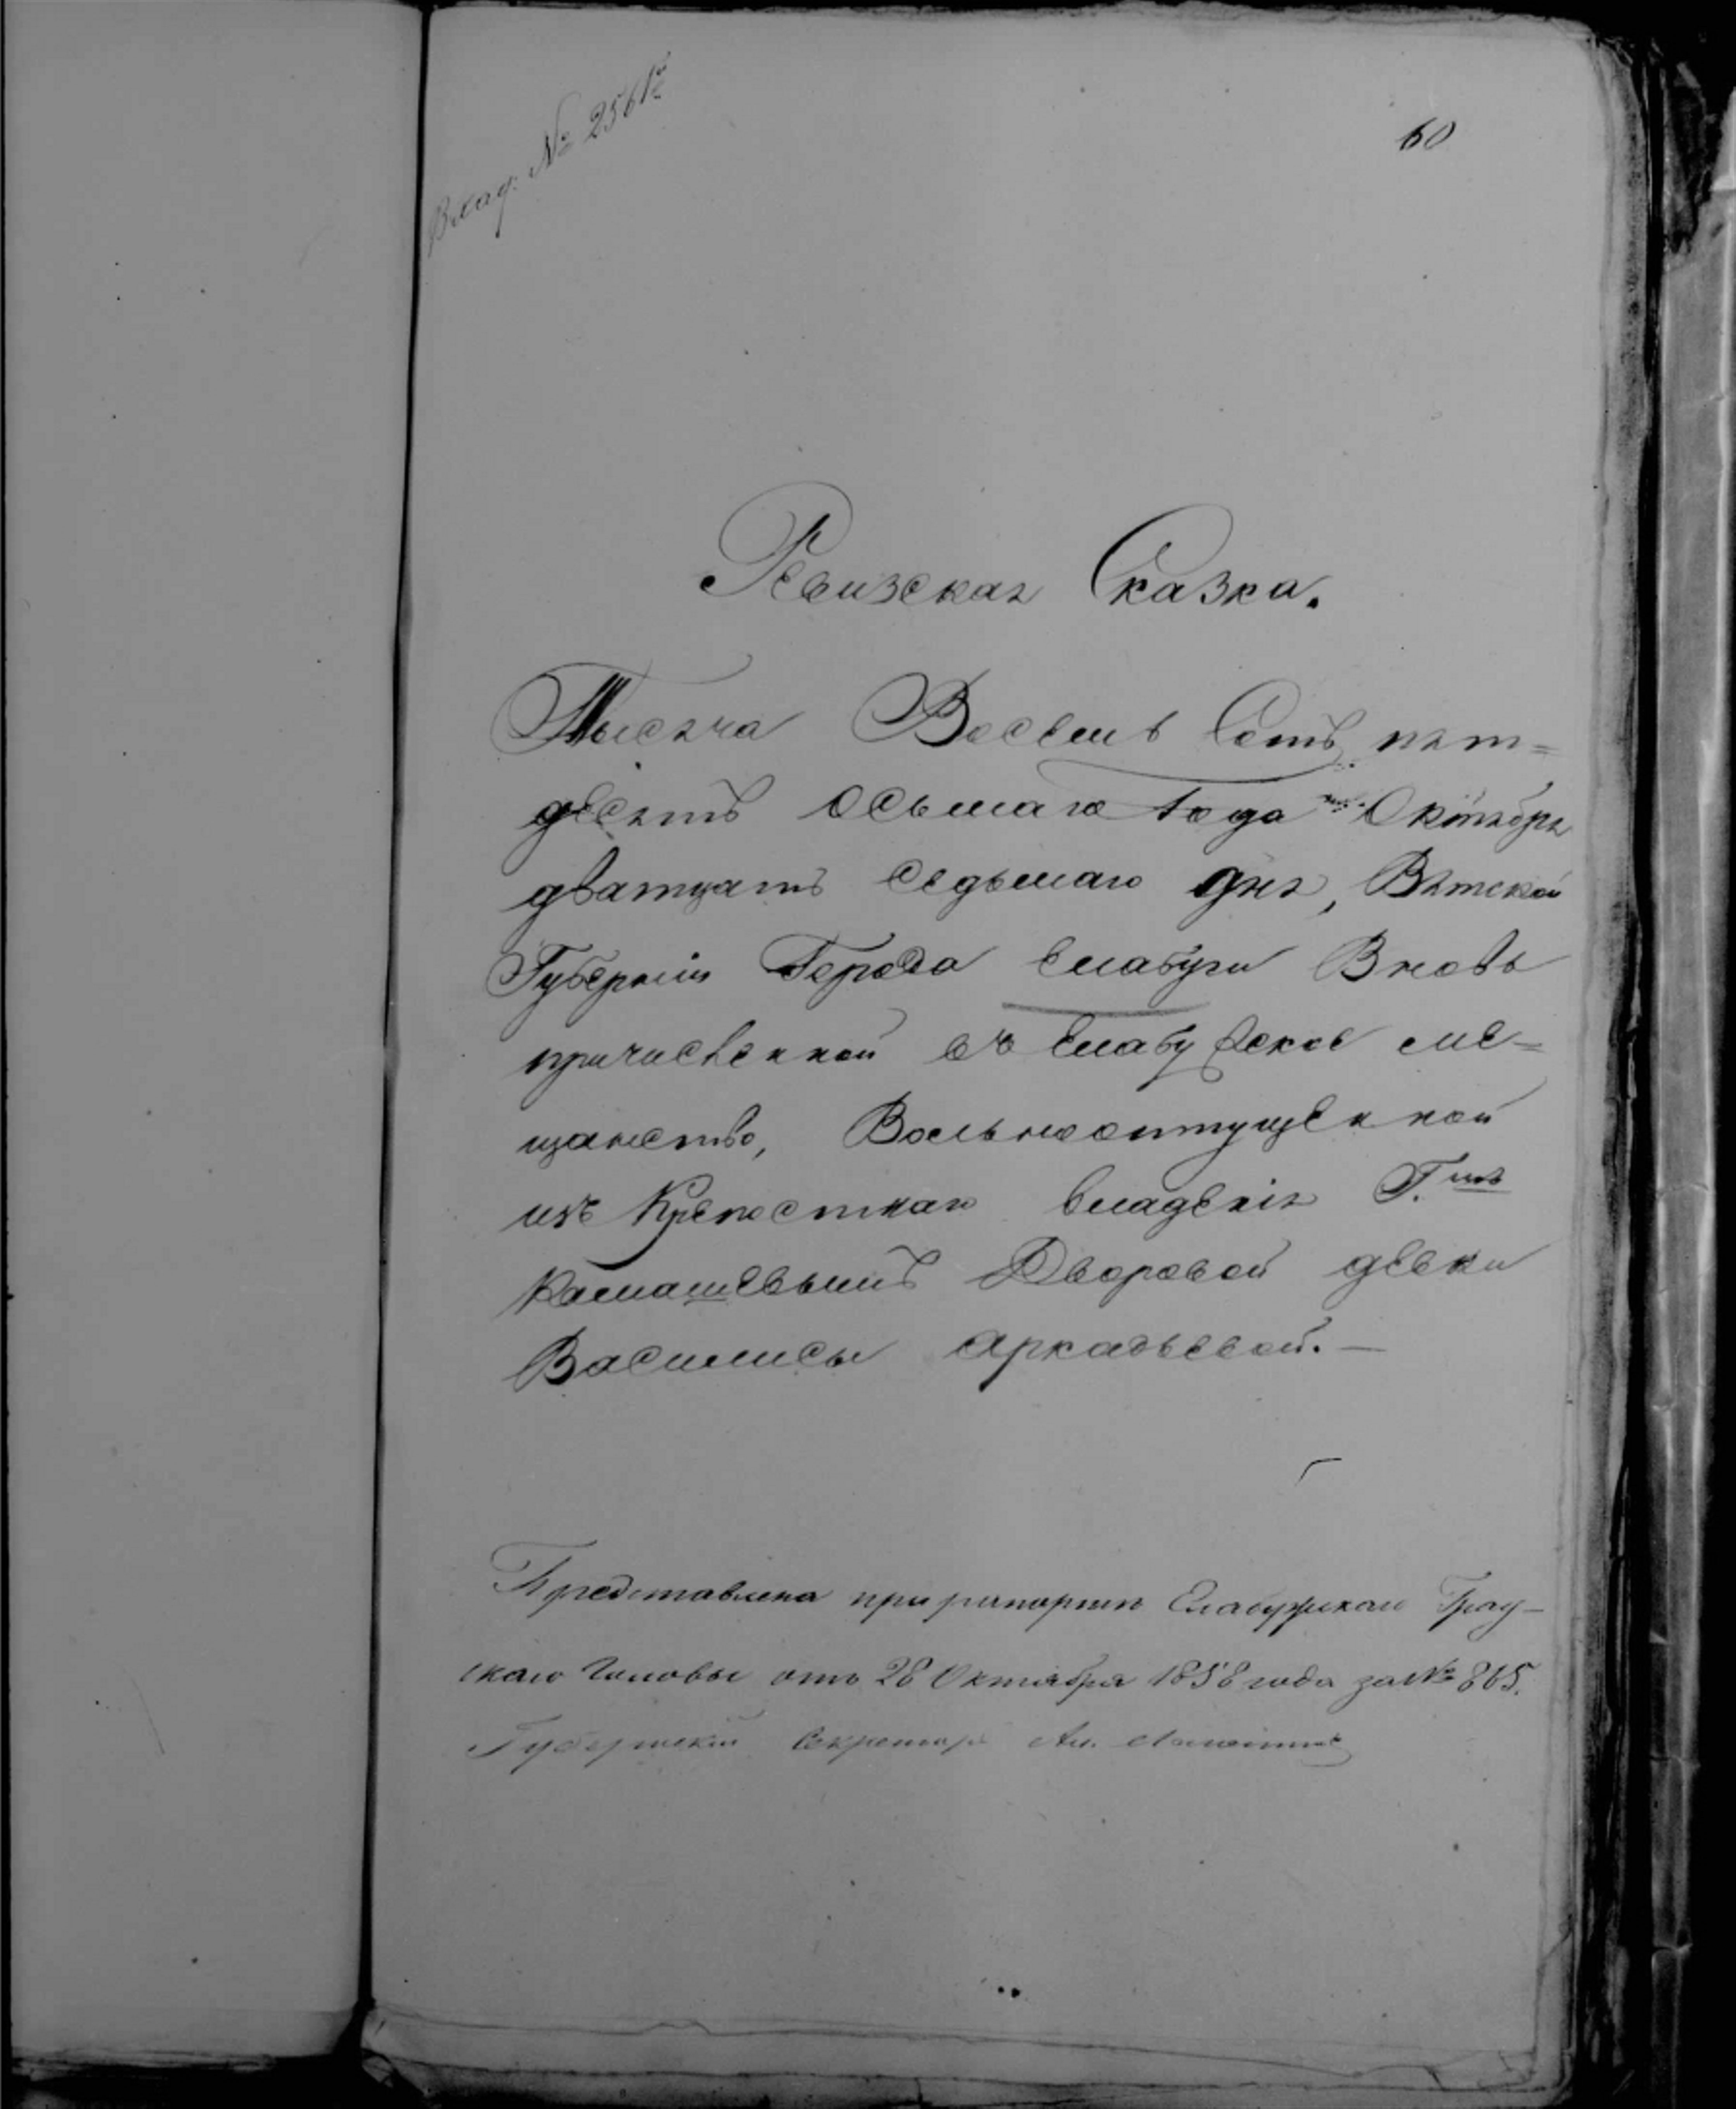 Вход: № 2561
60
Ревизская Сказка.
Тысяча Восемь Сотъ пят=
десятъ осьмаго года Октября
дватцать седьмаго дня, Вятской
Губерніи Города Елабуги Вновь
причисленной въ Елабужское ме=
щанство, Вольноотпущенной
изъ Крепостнаго владенія Г.
Дворовой девки
Василисы Аркадьевой.—
Представлена при рапортѣ Елабужскаго Град-
скаго Головы отъ 28 Октября 1858 года за № 865.
Губернскій Секретарь